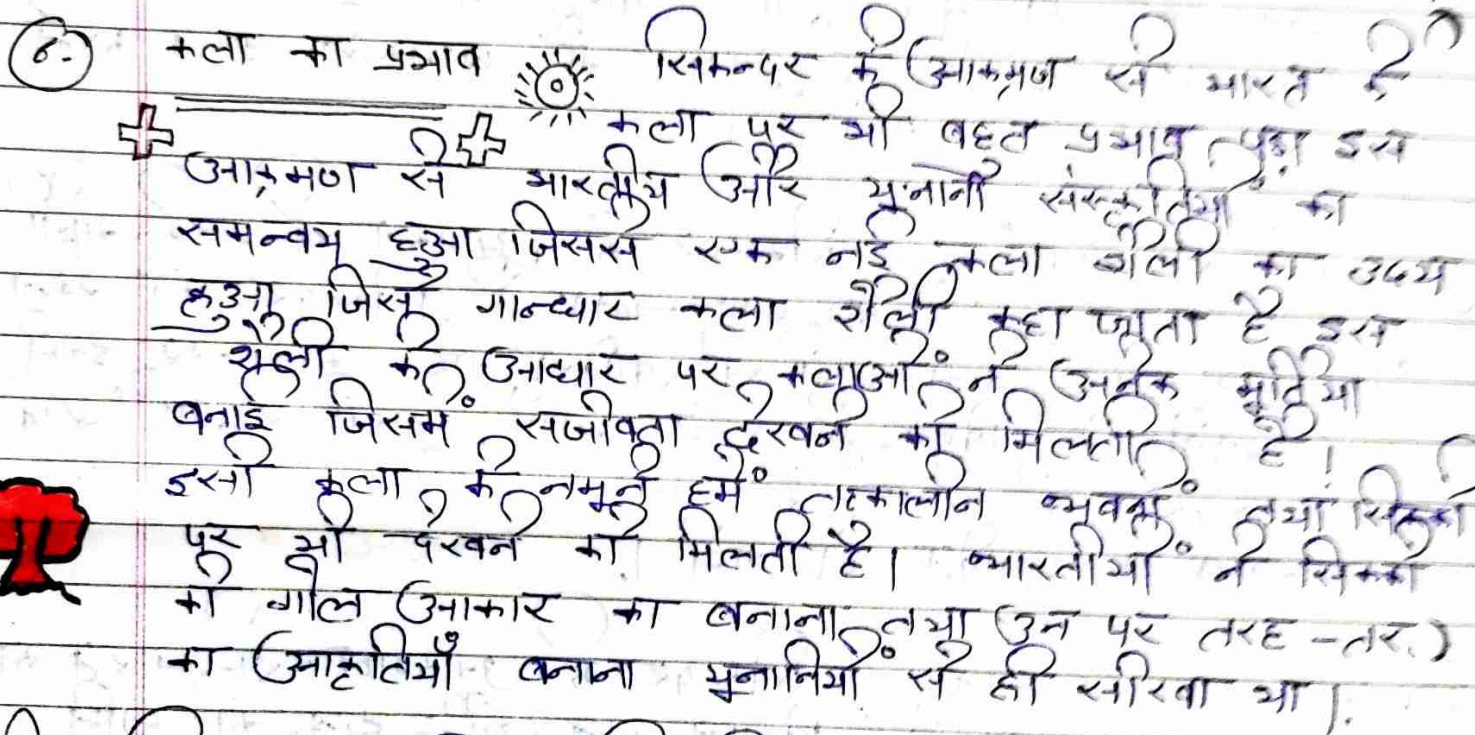 6. कला का प्रभाव सिकन्दर के आक्रमण से भारत की
कला पर भी बहुत प्रभाव पड़ा इस
आक्रमण से भारतीय और यूनानी संस्कृतियों का
समन्वय हुआ जिससे एक नई कला शैली का उदय
हुआ जिसे गान्धार कला शैली कहा जाता है इस
शैली के आधार पर कलाओं ने अनेक मूर्तियां
बनाई जिसमें सजीवता देखने को मिलती है!
इसी कला के नमूने हमें तत्कालीन भवनों तथा सिक्कों
पर भी देखने को मिलती है। भारतीयों ने सिक्कों
को गोल आकार का बनाना तथा उन पर तरह-तरह
की आकृतियाँ बनाना यूनानियों से ही सीखा था।